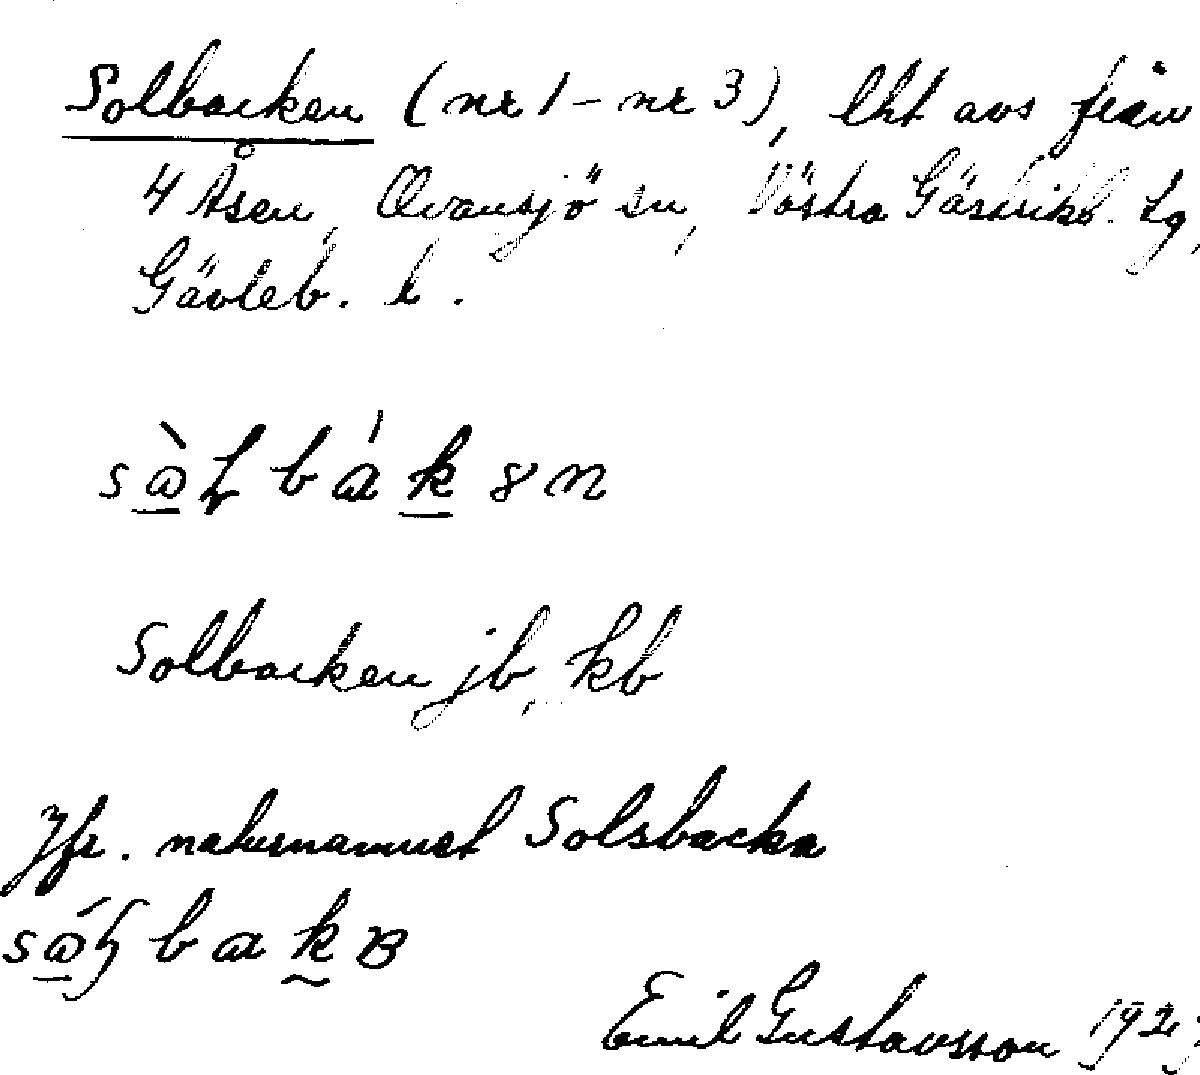 Solbacken (nr 1 – nr 3), lht avs från
4 Åsen, Ovansjö sn, Västra Gästrikl. tg,
Gävleb. l.
Solbacken jb, kb
Jfr. naturnamnet Solsbacka
Emil Gustavsson